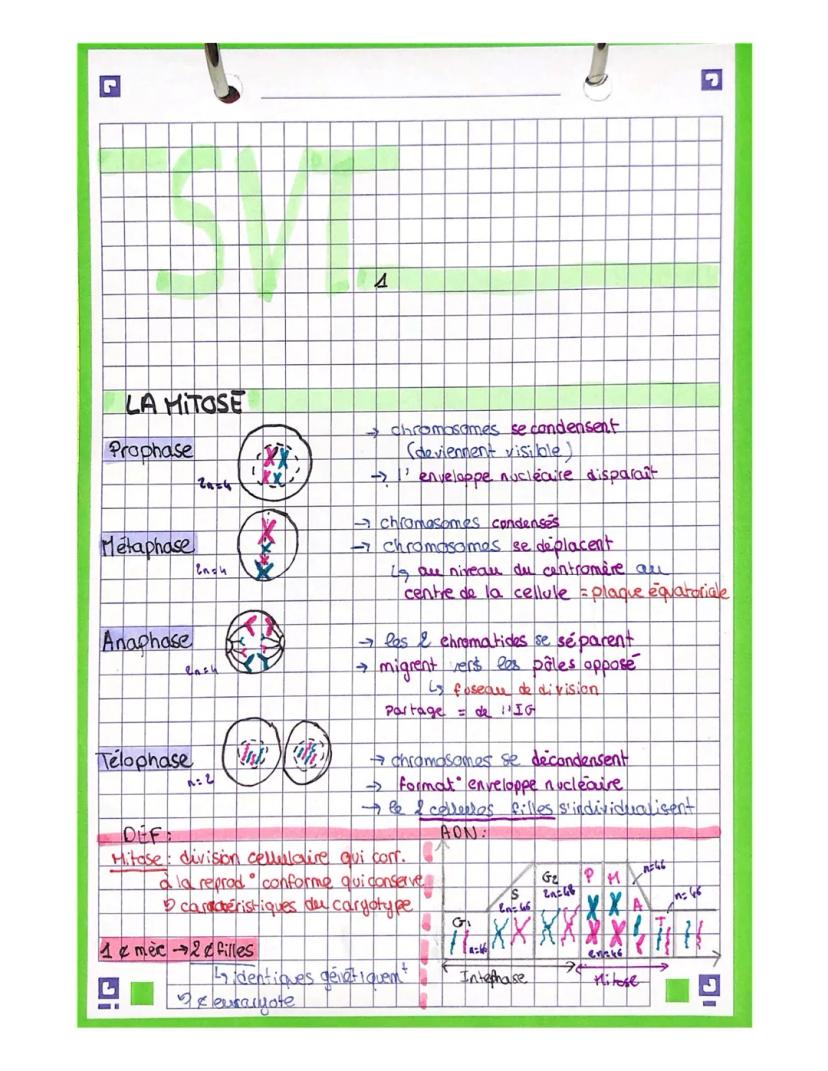 SVT
1
LA MITOSE
Prophase
2n=4
→ chromosomes se condensent
(deviennent visible)
→ l'enveloppe nucléaire disparaît
Métaphase
2n=4
→ chromosomes condensés
→ chromosomes se déplacent
↳ au niveau du centromère au
centre de la cellule = plaque équatoriale
Anaphase
2n=4
→ les 2 chromatides se séparent
→ migrent vers les pôles opposé
↳ fuseau de division
Partage = de l'IG
Télophase
n=2
→ chromosomes se décondensent
→ format° enveloppe nucléaire
→ le 2 cellules filles s'individualisent
DÉF :
Mitose : division cellulaire qui corr.
à la reprod° conforme qui conserve
↳ caractéristiques du caryotype
1 ¢ mèr → 2 ¢ filles
↳ identiques génétiquem^t
↳ ¢ eucaryote
ADN :
G1
n=46
S
2n=46
G2
2n=46
P
M
2n=46
A
n=46
T
n=46
Intephase
Mitose